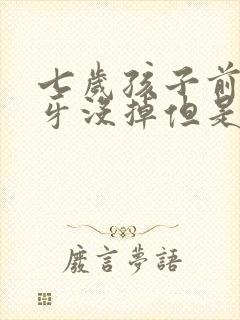 七歲孩子前
牙沒掉但是
廢言夢語